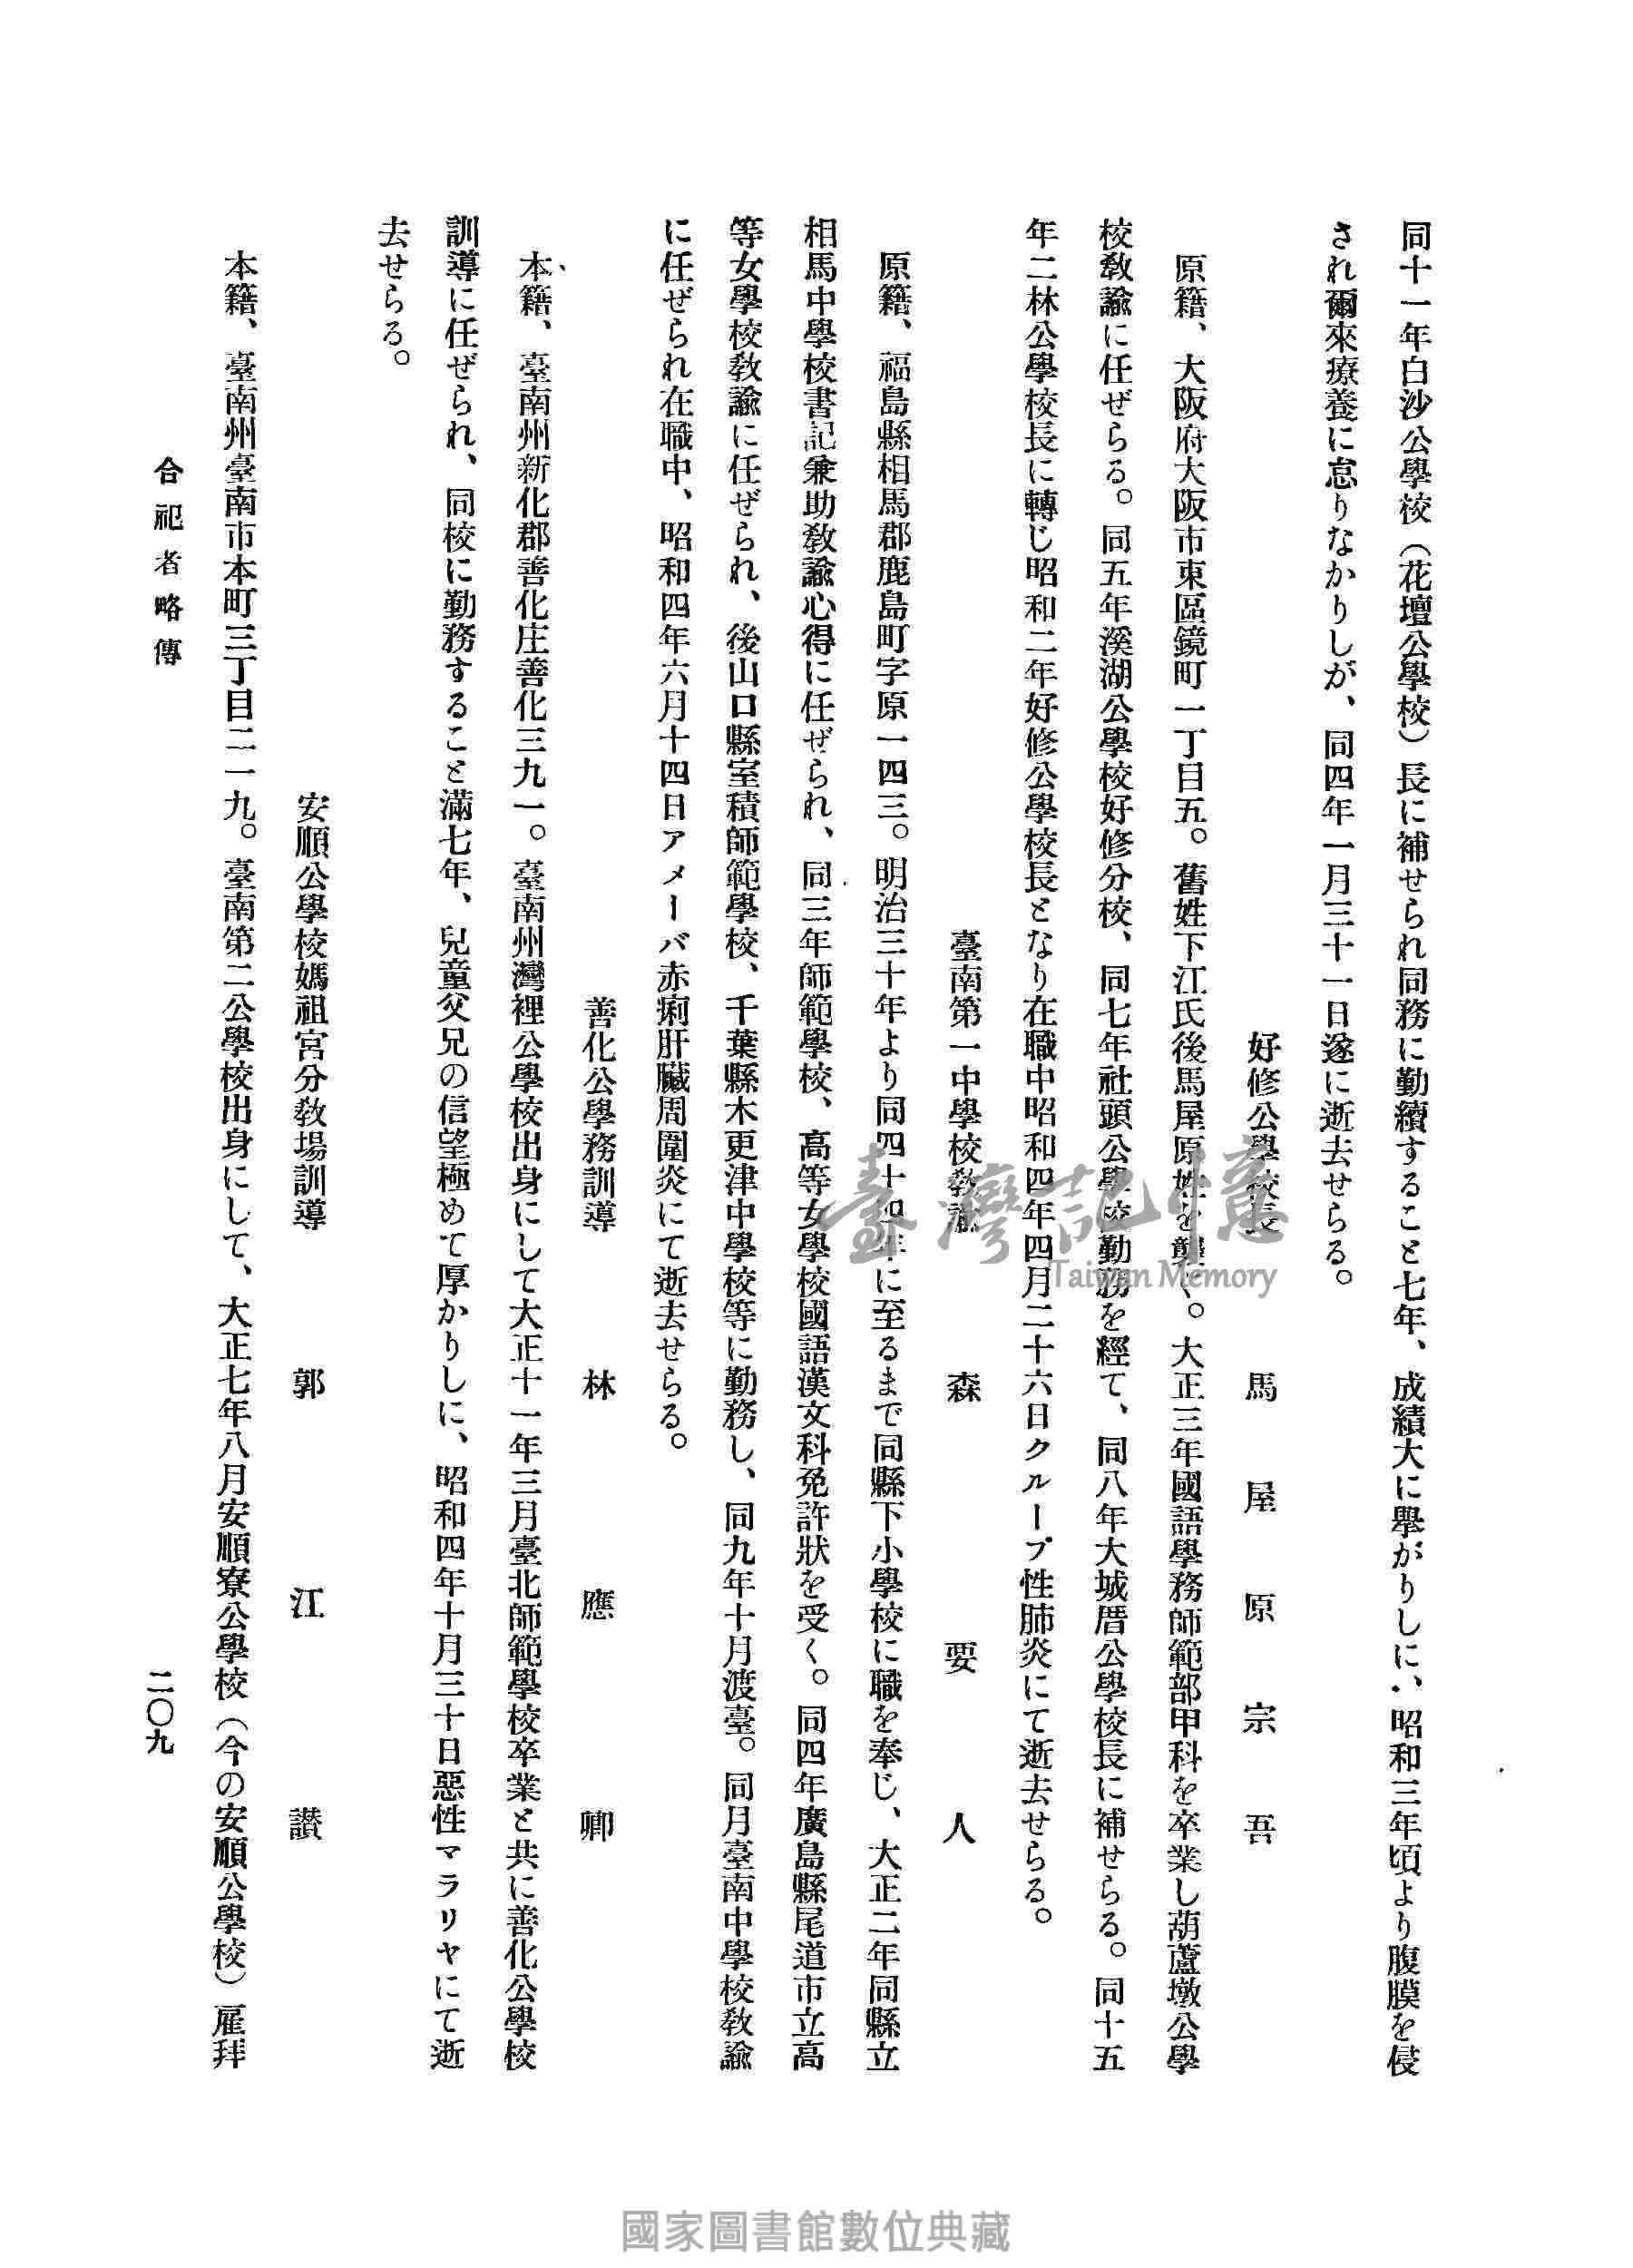 同十一年白沙公學校（花壇公學校）長に補せられ同務に勤續すること七年、成績大に擧がりしに、昭和三年頃より腹膜を侵
され爾來療養に怠りなかりしが、同四年一月三十一日遂に逝去せらる。
好修公學校長　馬屋原宗吾
原籍、大阪府大阪市東區鏡町一丁目五。舊姓下江氏後馬屋原姓を襲ぐ。大正三年國語學務師範部甲科を卒業し葫蘆墩公學
校敎諭に任ぜらる。同五年溪湖公學校好修分校、同七年社頭公學校勤務を經て、同八年大城厝公學校長に補せらる。同十五
年二林公學校長に轉じ昭和二年好修公學校長となり在職中昭和四年四月二十六日クループ性肺炎にて逝去せらる。
臺南第一中學校敎諭　森要人
原籍、福島縣相馬郡鹿島町字原一四三。明治三十年より同四十四年に至るまで同縣下小學校に職を奉じ、大正二年同縣立
相馬中學校書記兼助敎諭心得に任ぜられ、同三年師範學校、高等女學校國語漢文科免許狀を受く。同四年廣島縣尾道市立高
等女學校敎諭に任ぜられ、後山口縣室積師範學校、千葉縣木更津中學校等に勤務し、同九年十月渡臺。同月臺南中學校敎諭
に任ぜられ在職中、昭和四年六月十四日アメーバ赤痢肝臟周圍炎にて逝去せらる。
善化公學務訓導　林應卿
本籍、臺南州新化郡善化庄善化三九一。臺南州灣裡公學校出身にして大正十一年三月臺北師範學校卒業と共に善化公學校
訓導に任ぜられ、同校に勤務すること滿七年、兒童父兄の信望極めて厚かりしに、昭和四年十月三十日惡性マラリヤにて逝
去せらる。
安順公學校媽祖宮分敎場訓導　郭江讃
本籍、臺南州臺南市本町三丁目二一九。臺南第二公學校出身にして、大正七年八月安順寮公學校（今の安順公學校）雇拜
合祀者略傳
二〇九
臺灣記憶
Taiwan Memory
國家圖書館數位典藏